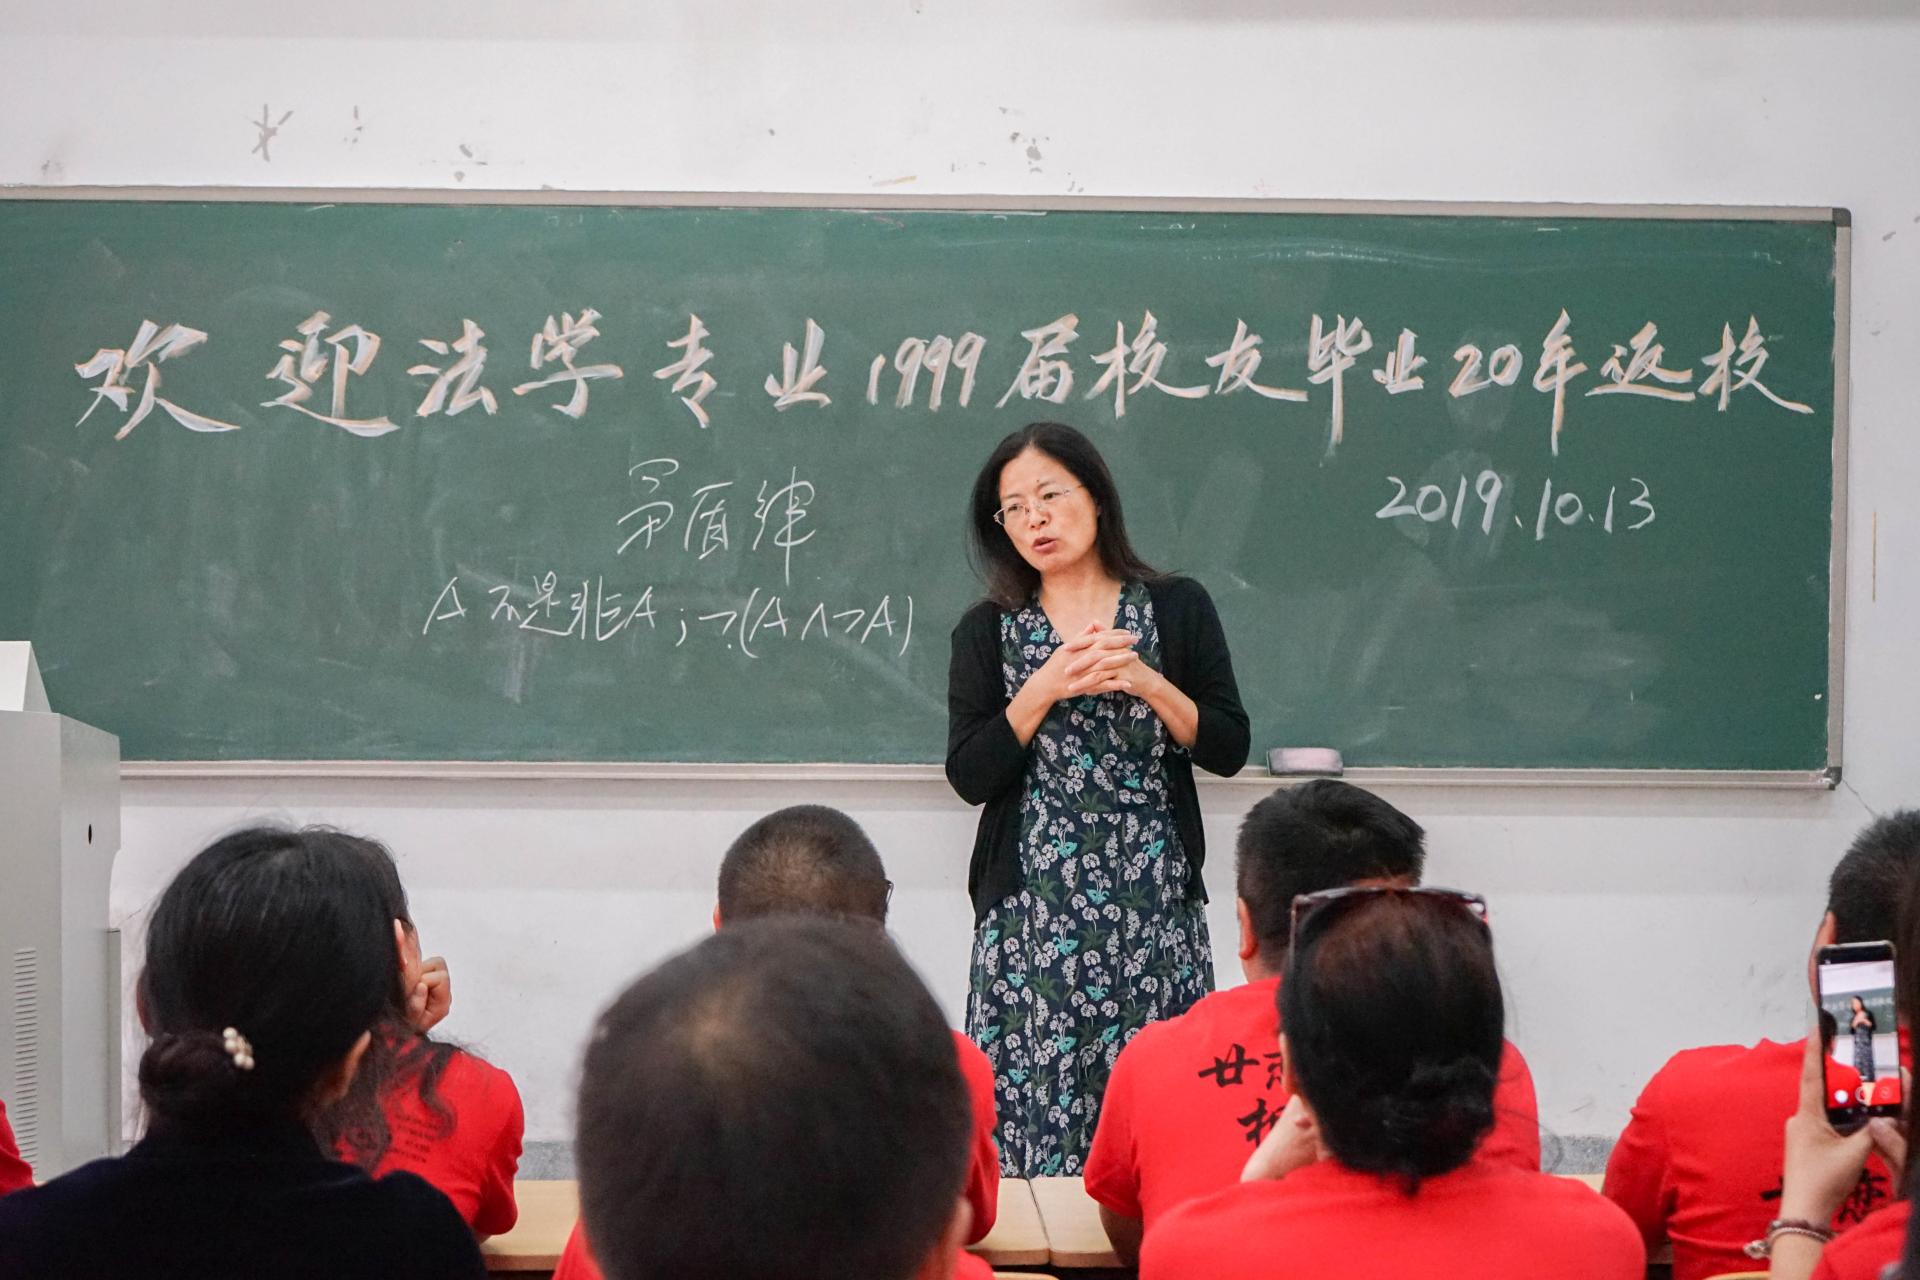 欢迎法学专业1999届校友毕业20年返校
2019.10.13
矛盾律
A不是非A；¬(A∧¬A)
廿